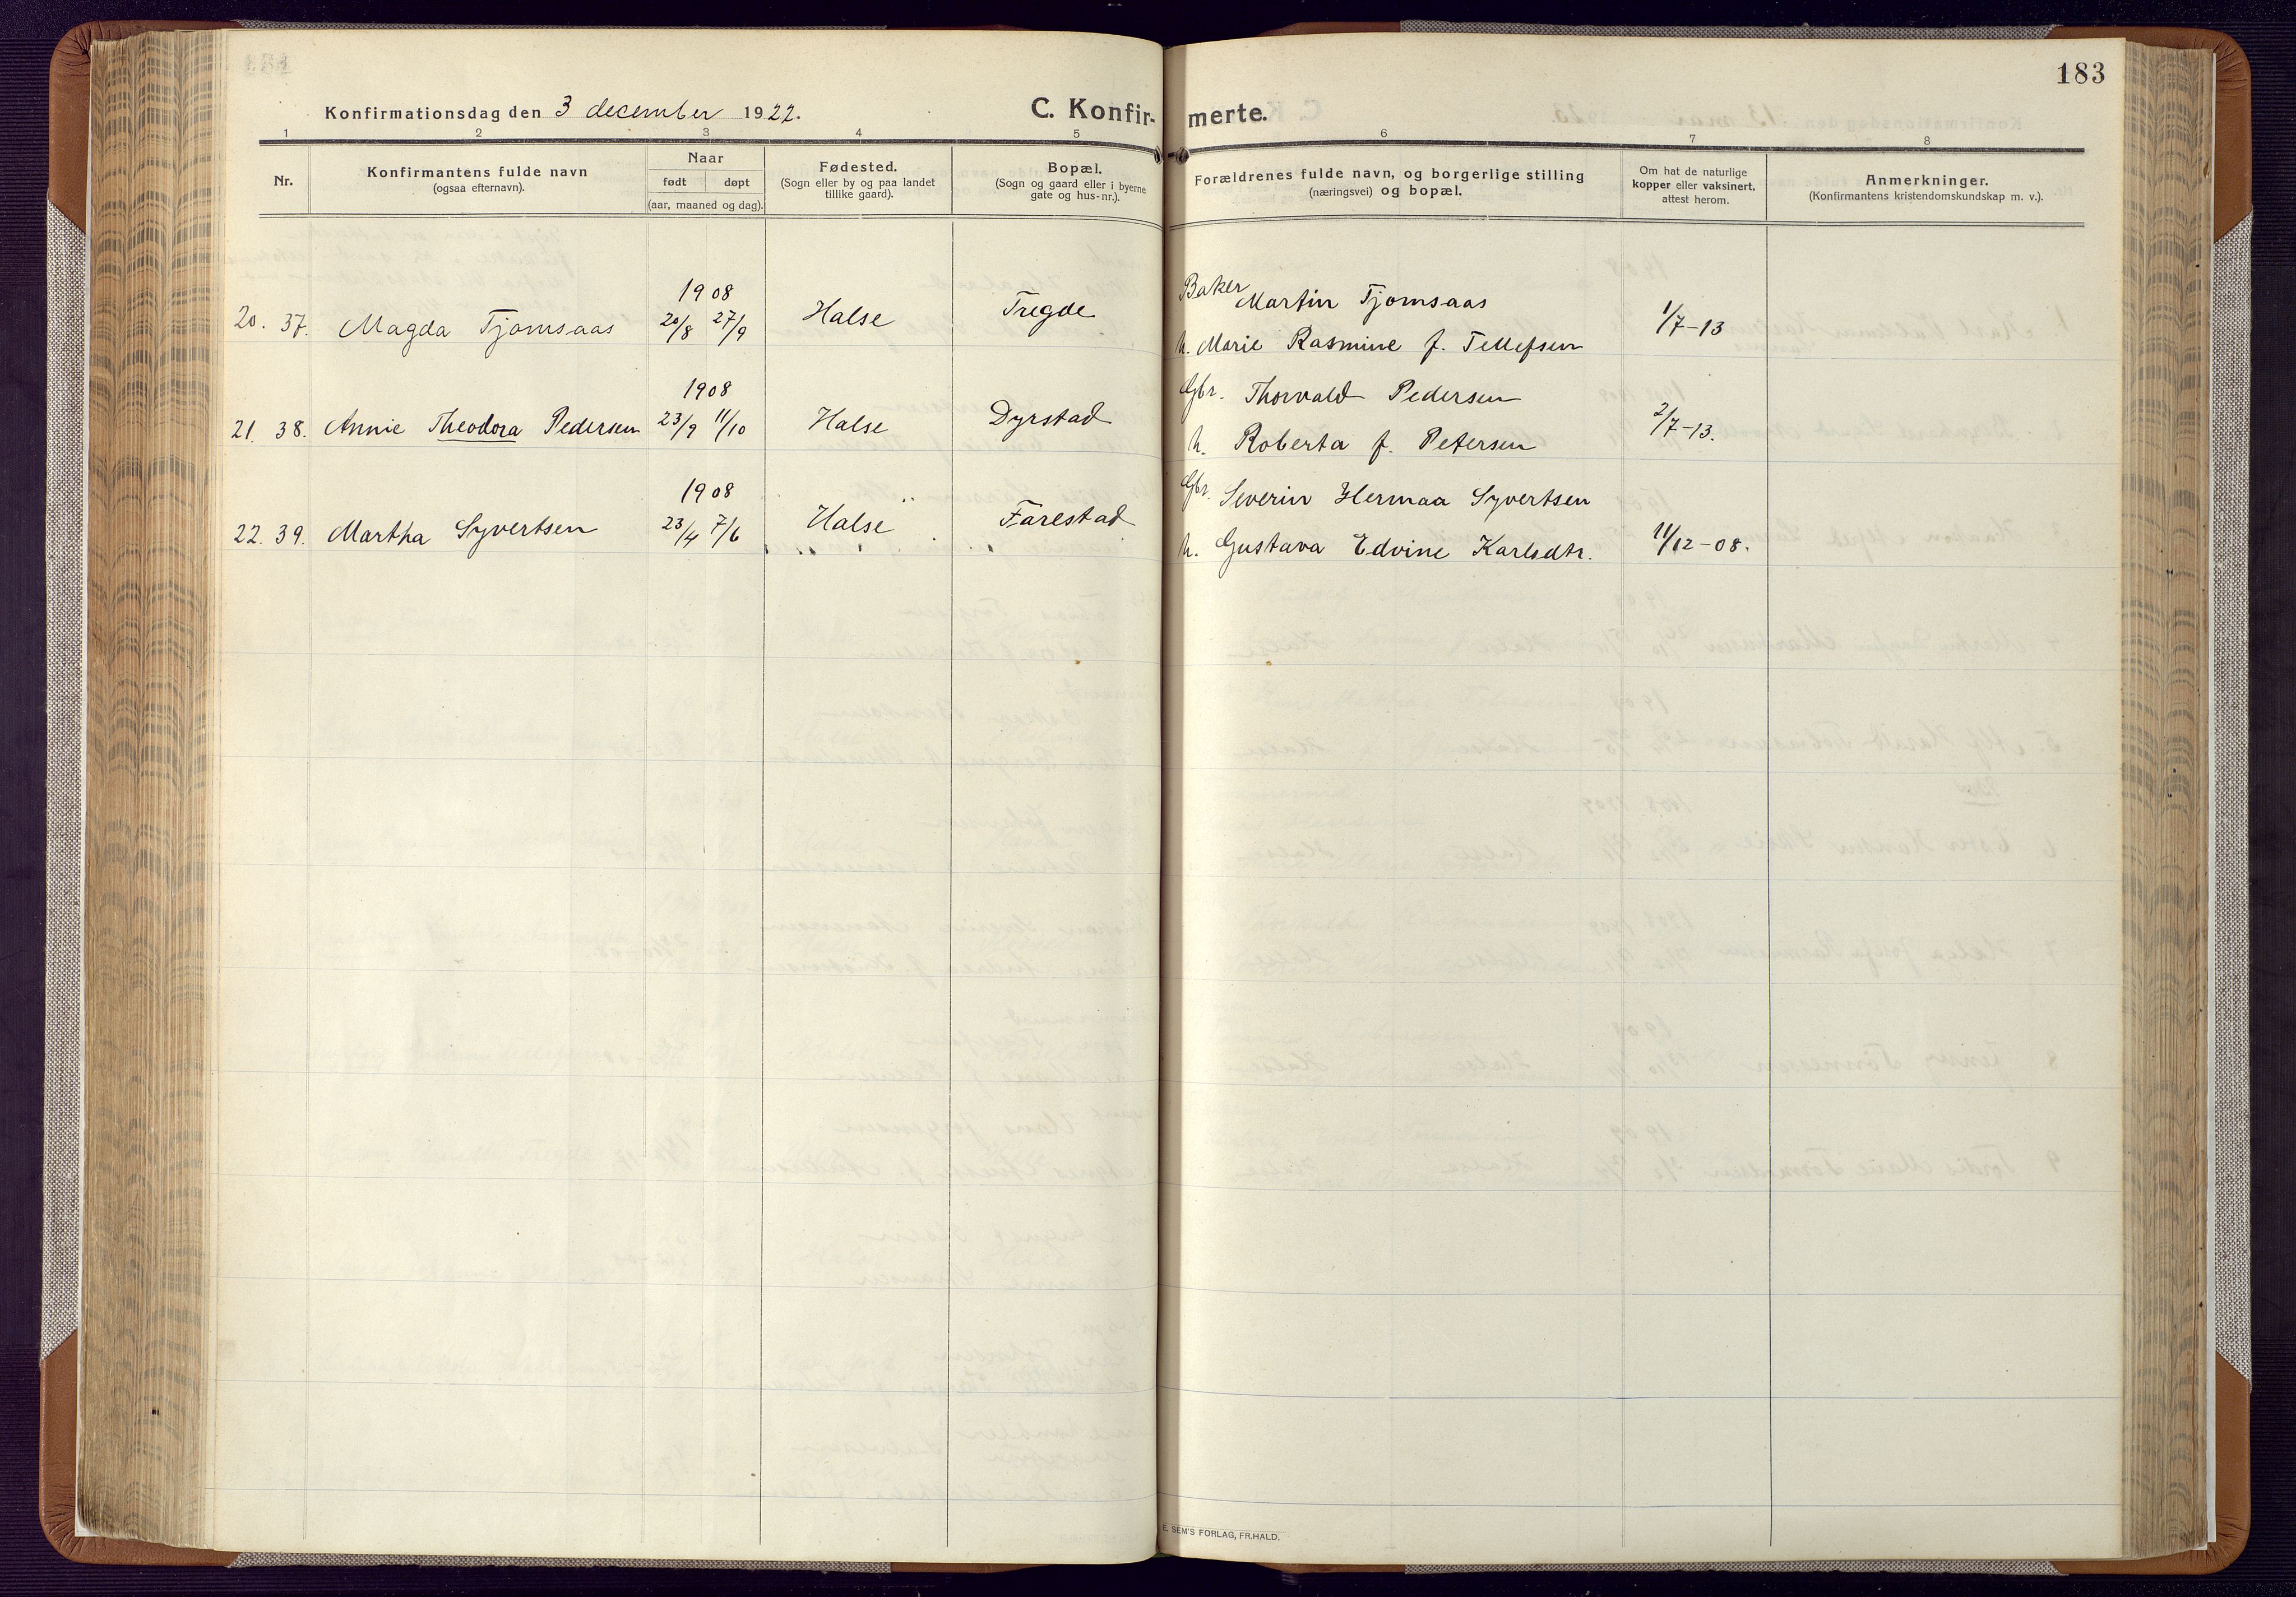 183
Konfirmationsdag den 3 december 1922.
C. Konfirmerte.
1 2 3 4 5 6 7 8
Nr.
Konfirmantens fulde navn
(ogsaa efternavn).
Naar
født døpt
(aar, maaned og dag).
Fødested.
(Sogn eller by og paa landet
tillike gaard).
Bopæl.
(Sogn og gaard eller i byerne
gate og hus-nr.).
Forældrenes fulde navn, og borgerlige stilling
(næringsvei) og bopæl.
Om hat de naturlige
kopper eller vaksinert,
attest herom.
Anmerkninger.
(Konfirmantens kristendomskundskap m. v.).
1908 Baker Martin Tjomsaas
20. 37. Magda Tjomsaas 20/8 27/9 Halse Tregde 1/7-13
h. Marie Rasmine f. Tellefsen
1908 Gbr. Thorvald Pedersen
21. 38. Annie Theodora Pedersen 23/9 11/10 Halse Dyrstad 2/7-13.
h. Roberta f. Petersen
1908 Gbr. Severin Hermaa Syvertsen
22. 39. Martha Syvertsen 23/4 7/6 Halse Farestad 11/12-08.
h. Gustava Edvine Karlsdtr.
E. SEM'S FORLAG, FR.HALD.